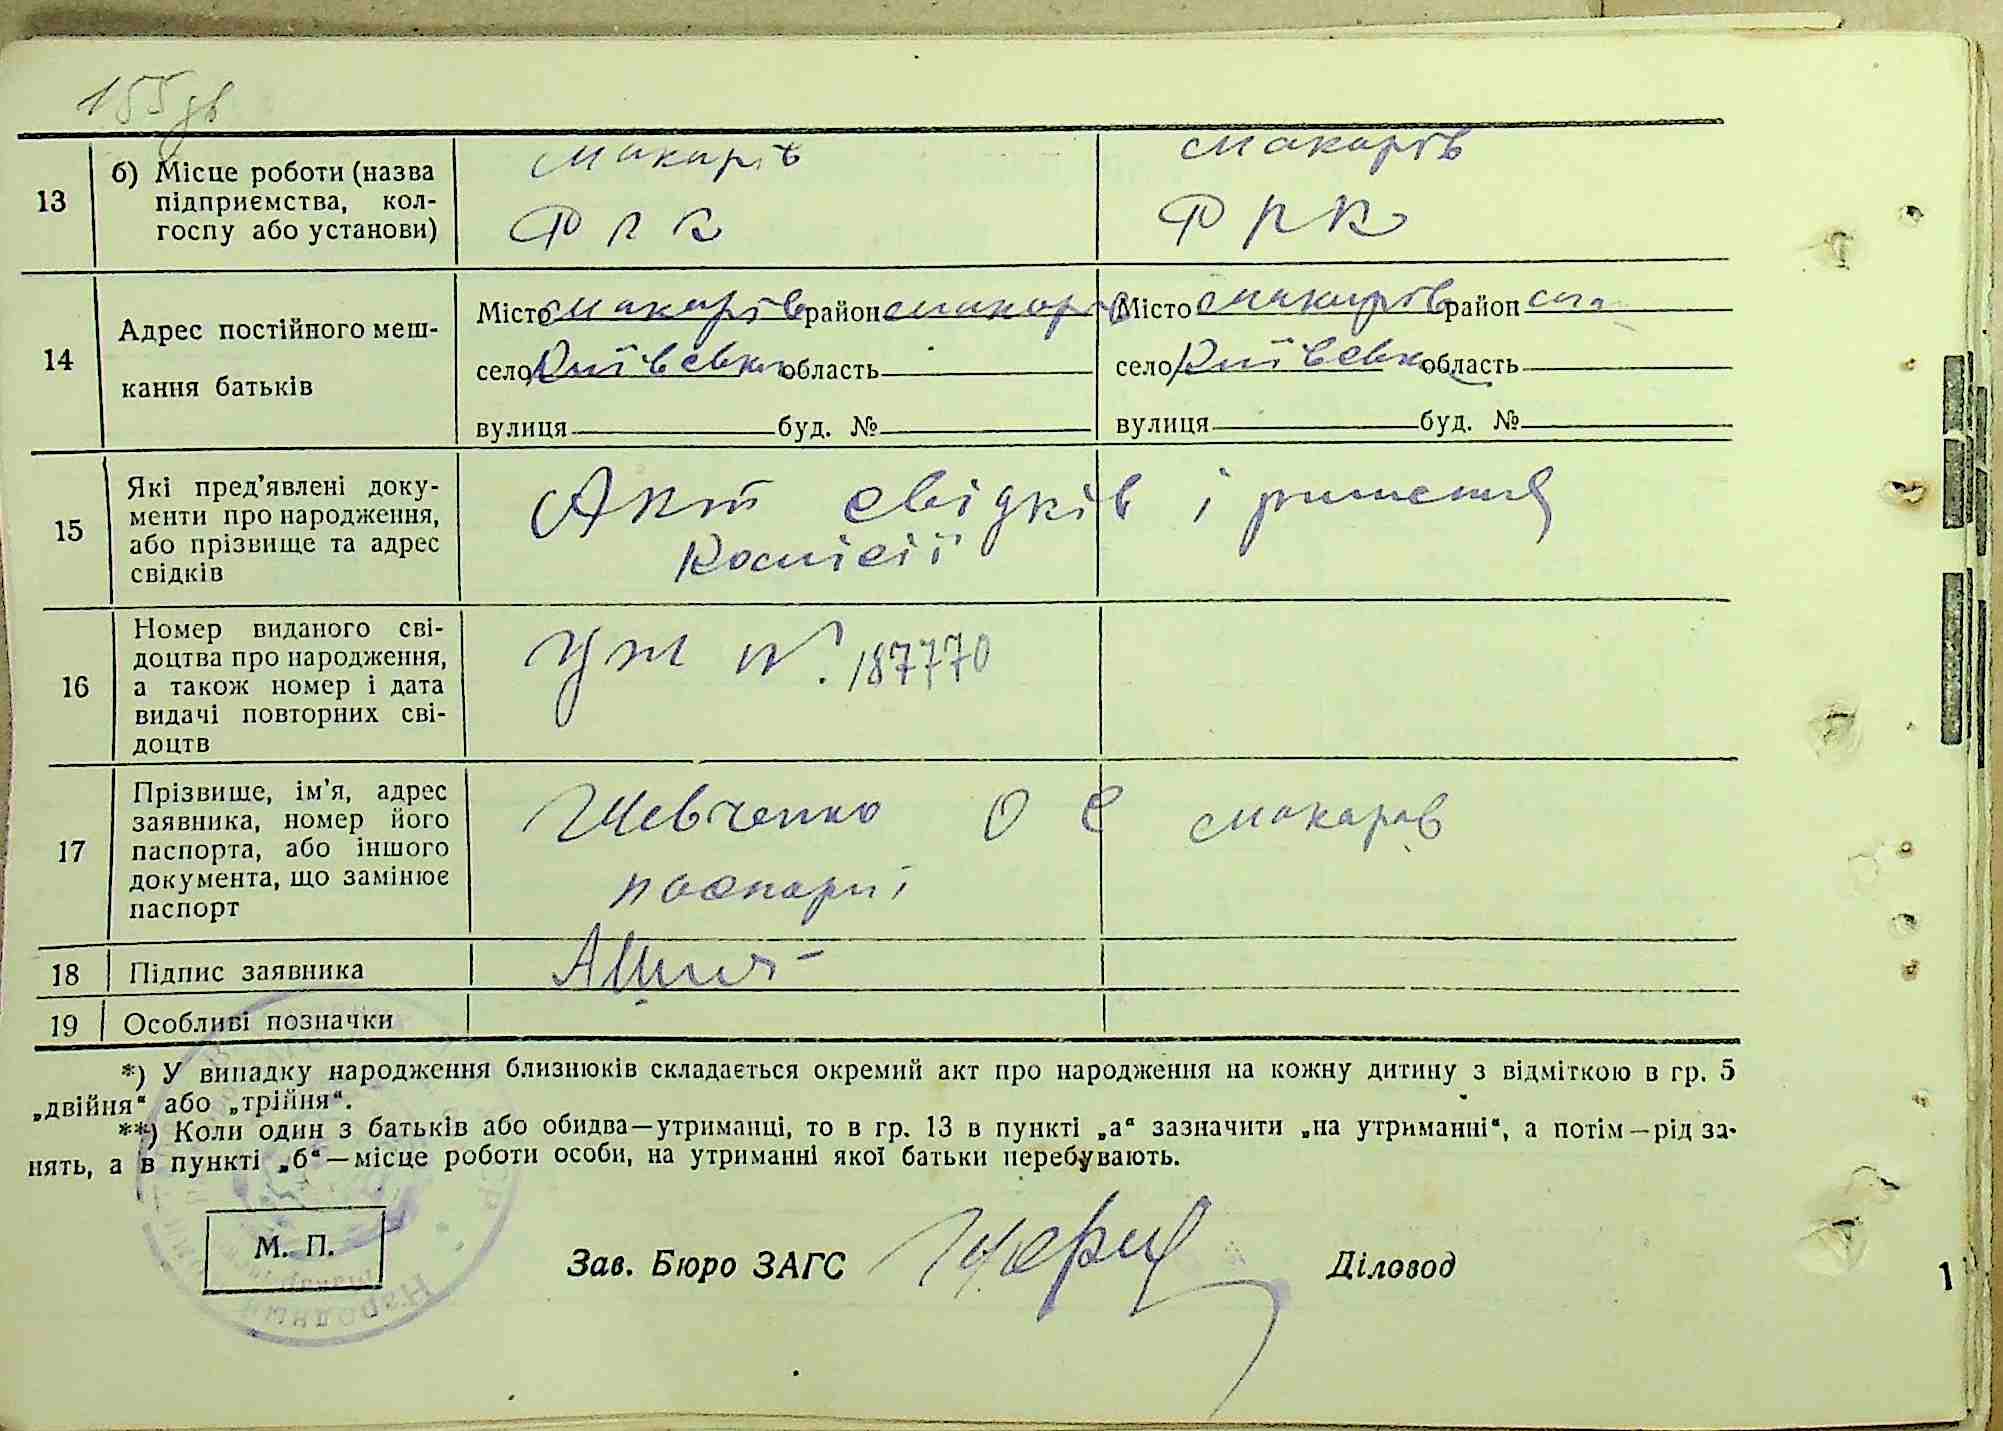 13 б) Місце роботи (назва підприємства, колгоспу або установи)
Макарів
Макарів
Ф Р К
14 Адрес постійного мешкання батьків
Місто Макарів район Макарів
село Київська область
вулиця буд. №
Місто Макарів район
село Київська область
вулиця буд. №
15 Які пред’явлені документи про народження, або прізвище та адрес свідків
Акт свідків і ришення
Комісії
16 Номер виданого свідоцтва про народження, а також номер і дата видачі повторних свідоцтв
№ 187770
17 Прізвище, ім’я, адрес заявника, номер його паспорта, або іншого документа, що замінює паспорт
Шевченко О Є Макарів
паспорті
18 Підпис заявника
19 Особливі позначки
*) У випадку народження близнюків складається окремий акт про народження на кожну дитину з відміткою в гр. 5
„двійня“ або „трійня“.
**) Коли один з батьків або обидва—утриманці, то в гр. 13 в пункті „а“ зазначити „на утриманні“, а потім—рід за-
нять, а в пункті „б“—місце роботи особи, на утриманні якої батьки перебувають.
М. П.
Зав. Бюро ЗАГС
Діловод
1